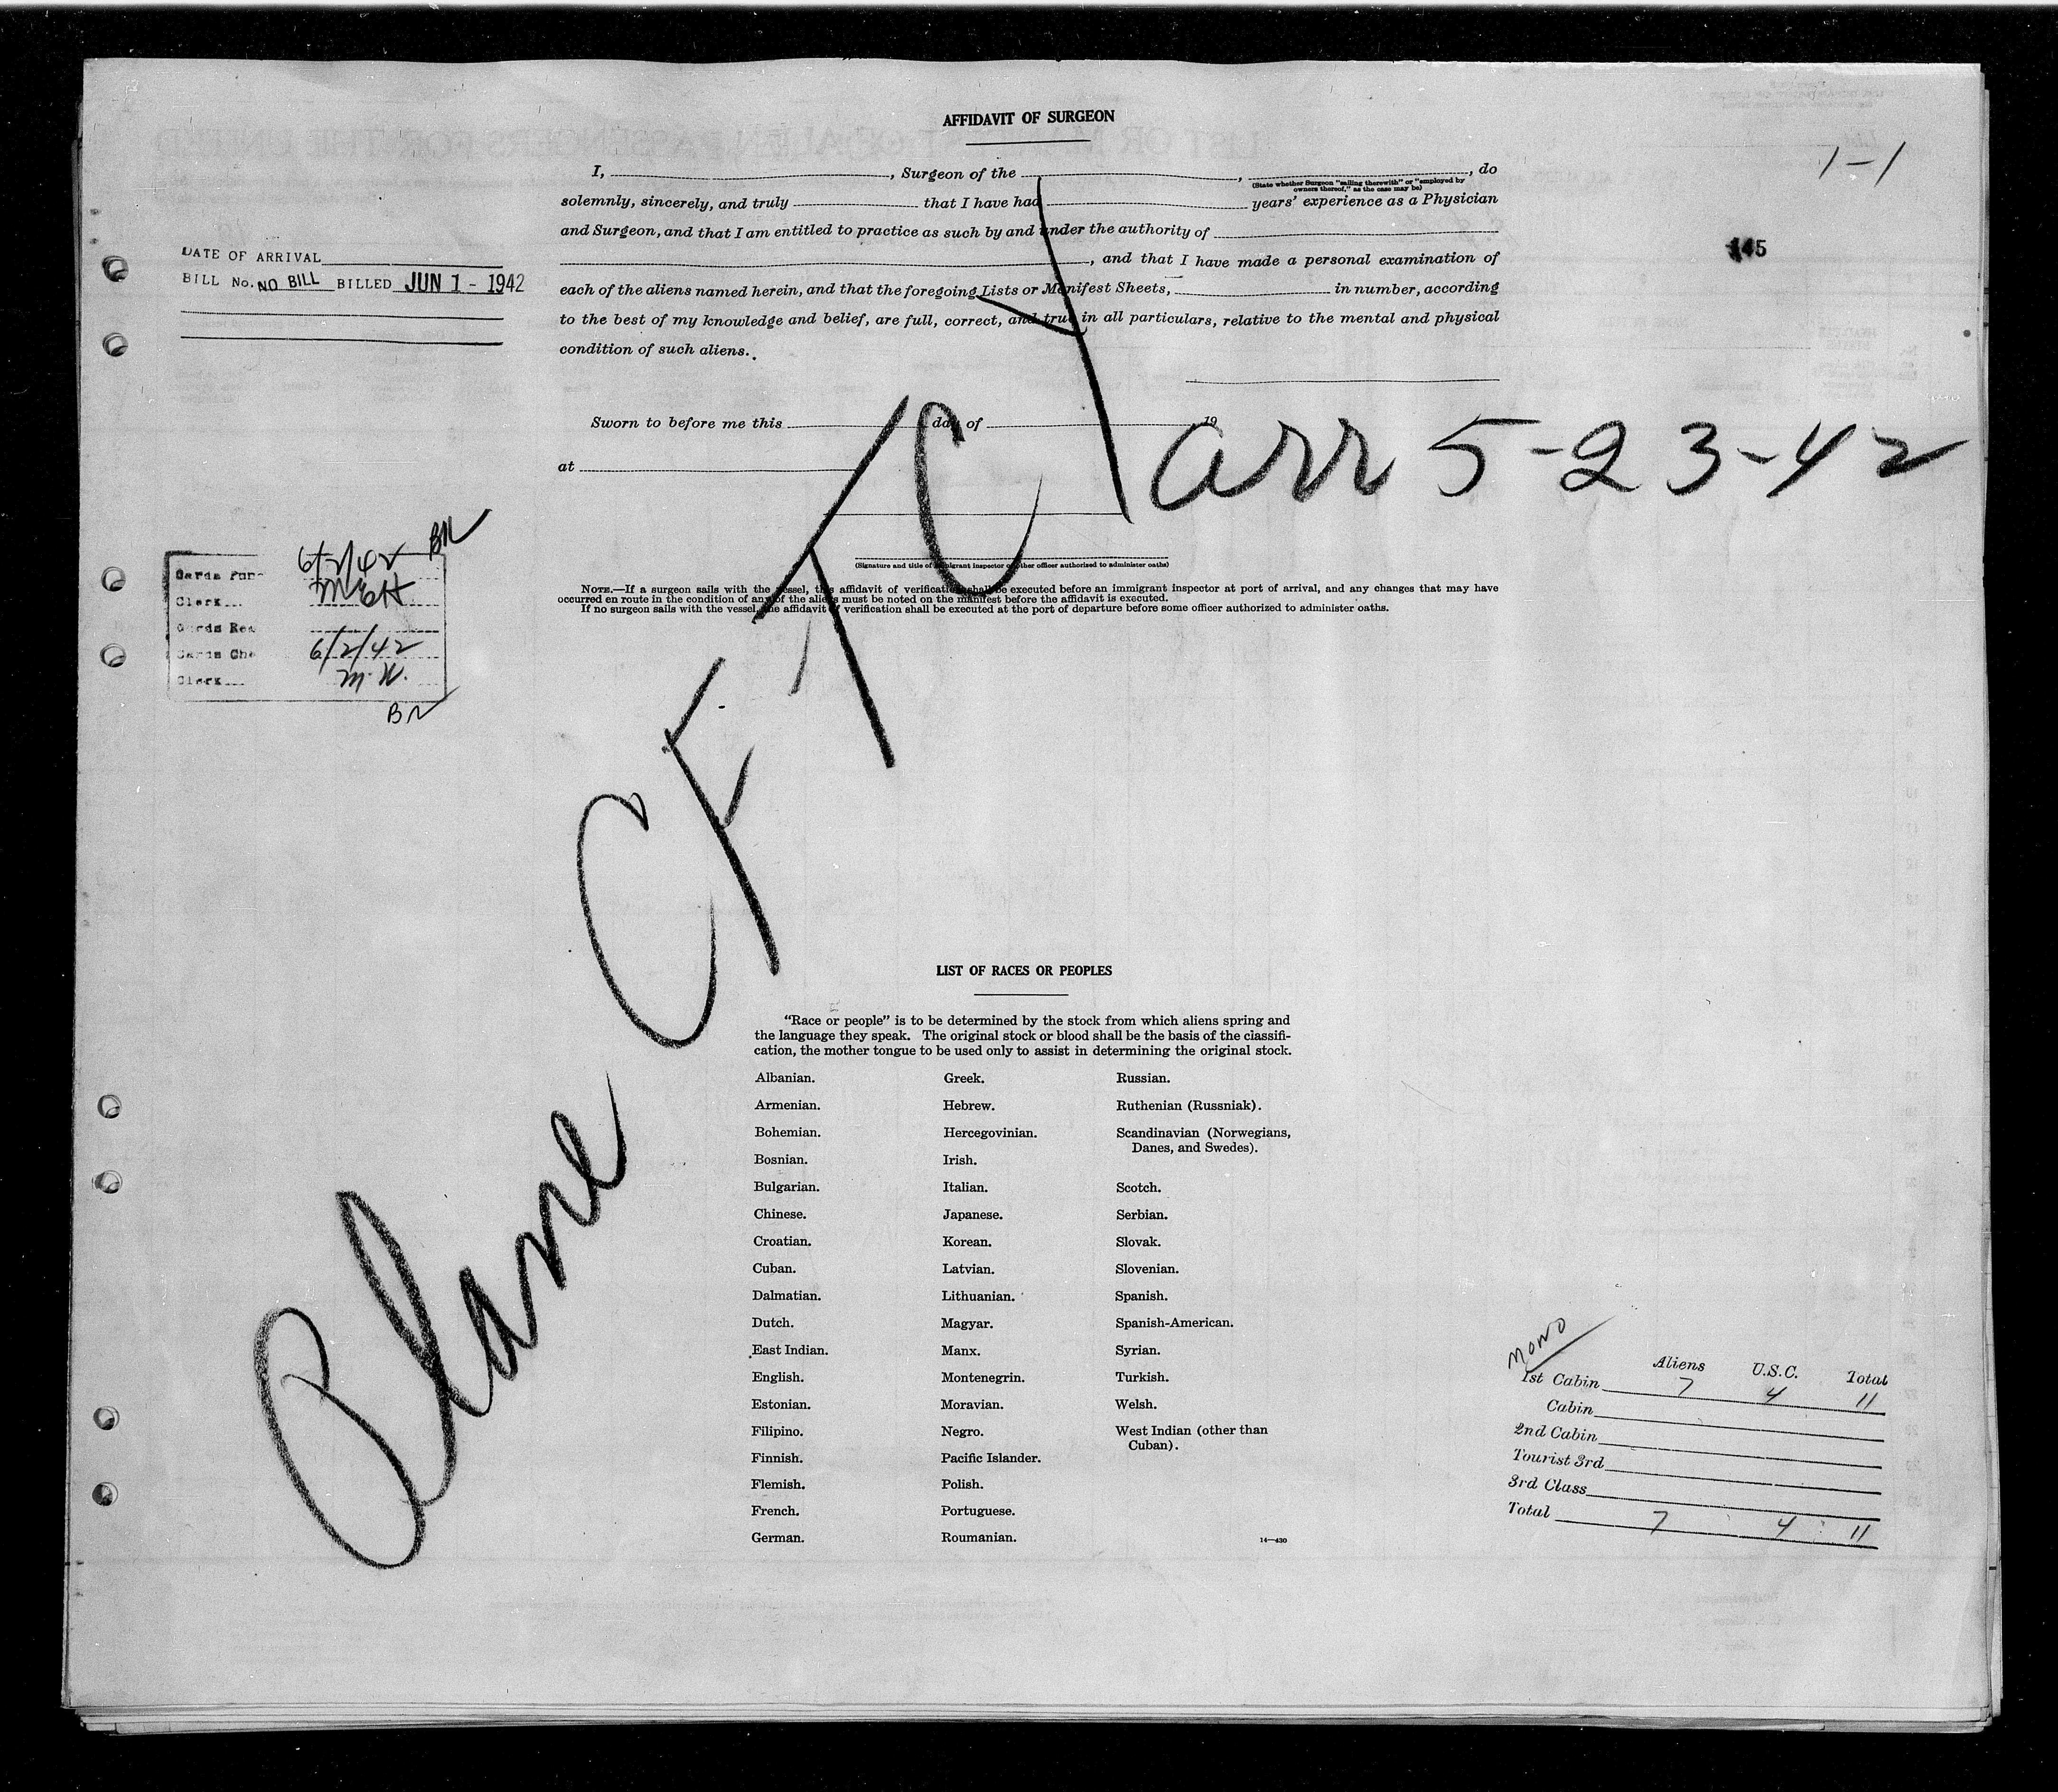 AFFIDAVIT OF SURGEON
1-1
I, , Surgeon of the , , do
(State whether Surgeon "sailing therewith" or "employed by
owners thereof," as the case may be)
solemnly, sincerely, and truly that I have had years' experience as a Physician
and Surgeon, and that I am entitled to practice as such by and under the authority of
, and that I have made a personal examination of
each of the aliens named herein, and that the foregoing Lists or Manifest Sheets, in number, according
to the best of my knowledge and belief, are full, correct, and true in all particulars, relative to the mental and physical
condition of such aliens.
145
DATE OF ARRIVAL
BILL No. NO BILL BILLED JUN 1 - 1942
Sworn to before me this day of 19
at
arr 5-23-42
(Signature and title of immigrant inspector or other officer authorized to administer oaths)
NOTE.—If a surgeon sails with the vessel, this affidavit of verification shall be executed before an immigrant inspector at port of arrival, and any changes that may have
occurred en route in the condition of any of the aliens must be noted on the manifest before the affidavit is executed.
If no surgeon sails with the vessel, the affidavit of verification shall be executed at the port of departure before some officer authorized to administer oaths.
6/2/42
Clerk
6/2/42
Clerk M.W.
Plane CF TCY
LIST OF RACES OR PEOPLES
"Race or people" is to be determined by the stock from which aliens spring and
the language they speak. The original stock or blood shall be the basis of the classifi-
cation, the mother tongue to be used only to assist in determining the original stock.
Albanian.
Armenian.
Bohemian.
Bosnian.
Bulgarian.
Chinese.
Croatian.
Cuban.
Dalmatian.
Dutch.
East Indian.
English.
Estonian.
Filipino.
Finnish.
Flemish.
French.
German.
Greek.
Hebrew.
Hercegovinian.
Irish.
Italian.
Japanese.
Korean.
Latvian.
Lithuanian.
Magyar.
Manx.
Montenegrin.
Moravian.
Negro.
Pacific Islander.
Polish.
Portuguese.
Roumanian.
Russian.
Ruthenian (Russniak).
Scandinavian (Norwegians,
Danes, and Swedes).
Scotch.
Serbian.
Slovak.
Slovenian.
Spanish.
Spanish-American.
Syrian.
Turkish.
Welsh.
West Indian (other than
Cuban).
14—430
Aliens U.S.C. Total
1st Cabin 7 4 11
Cabin
2nd Cabin
Tourist 3rd
3rd Class
Total 7 4 11